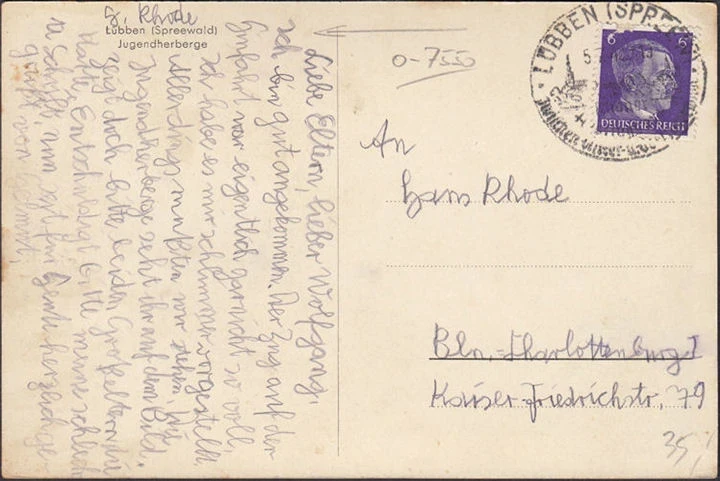 S. Rhode
Lübben (Spreewald)
Jugendherberge
Liebe Eltern, lieber Wolfgang,
Ich bin gut angekommen. Der Zug auf der
Einfahrt war eigentlich garnicht so voll,
ich habe es mir schlimmer vorgestellt
Allerdings mußten wir stehen. Die
Jugendherberge seht ihr auf dem Bild.
Zeigt doch bitte beiden Großeltern die
Karte. Entschuldigt bitte meine schlech
te Schrift, nun seit für heute herzlichge
grüßt von
o-7550
LÜBBEN (SPREEW
6 6
DEUTSCHES REICH
An
Hans Rhode
Bln. Charlottenburg I
Kaiser-Friedrichstr. 79
35,